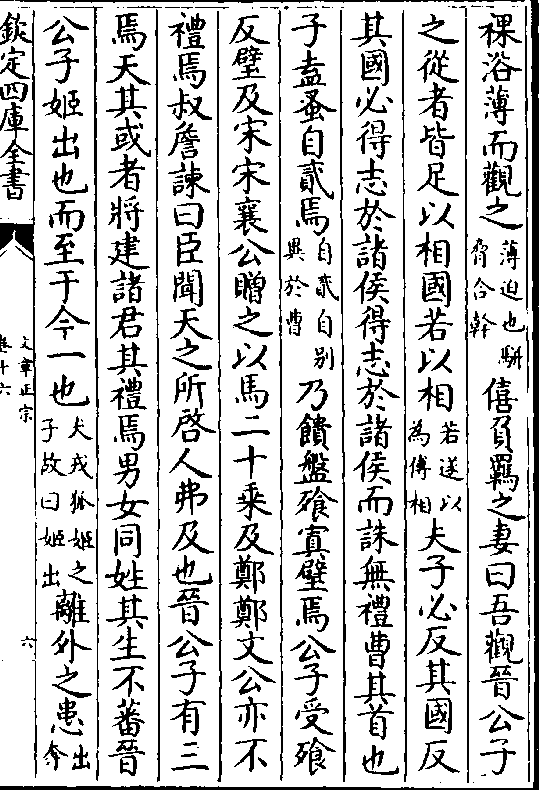 裸浴薄而觀之薄迫也駢脅合幹僖負羈之妻曰吾觀晉公子
之從者皆足以相國若以相若遂以為傅相夫子必反其國反
其國必得志於諸侯得志於諸侯而誅無禮曹其首也
子盍蚤自貳焉自貳自别異於曹乃饋盤飱寘璧焉公子受飱
反璧及宋宋襄公贈之以馬二十乘及鄭鄭文公亦不
禮焉叔詹諫曰臣聞天之所啓人弗及也晉公子有三
焉天其或者將建諸君其禮焉男女同姓其生不蕃晉
公子姬出也而至于今一也犬戎狐姬之子故曰姬出離外之患出奔
欽定四庫全書
文章正宗
卷十六
六